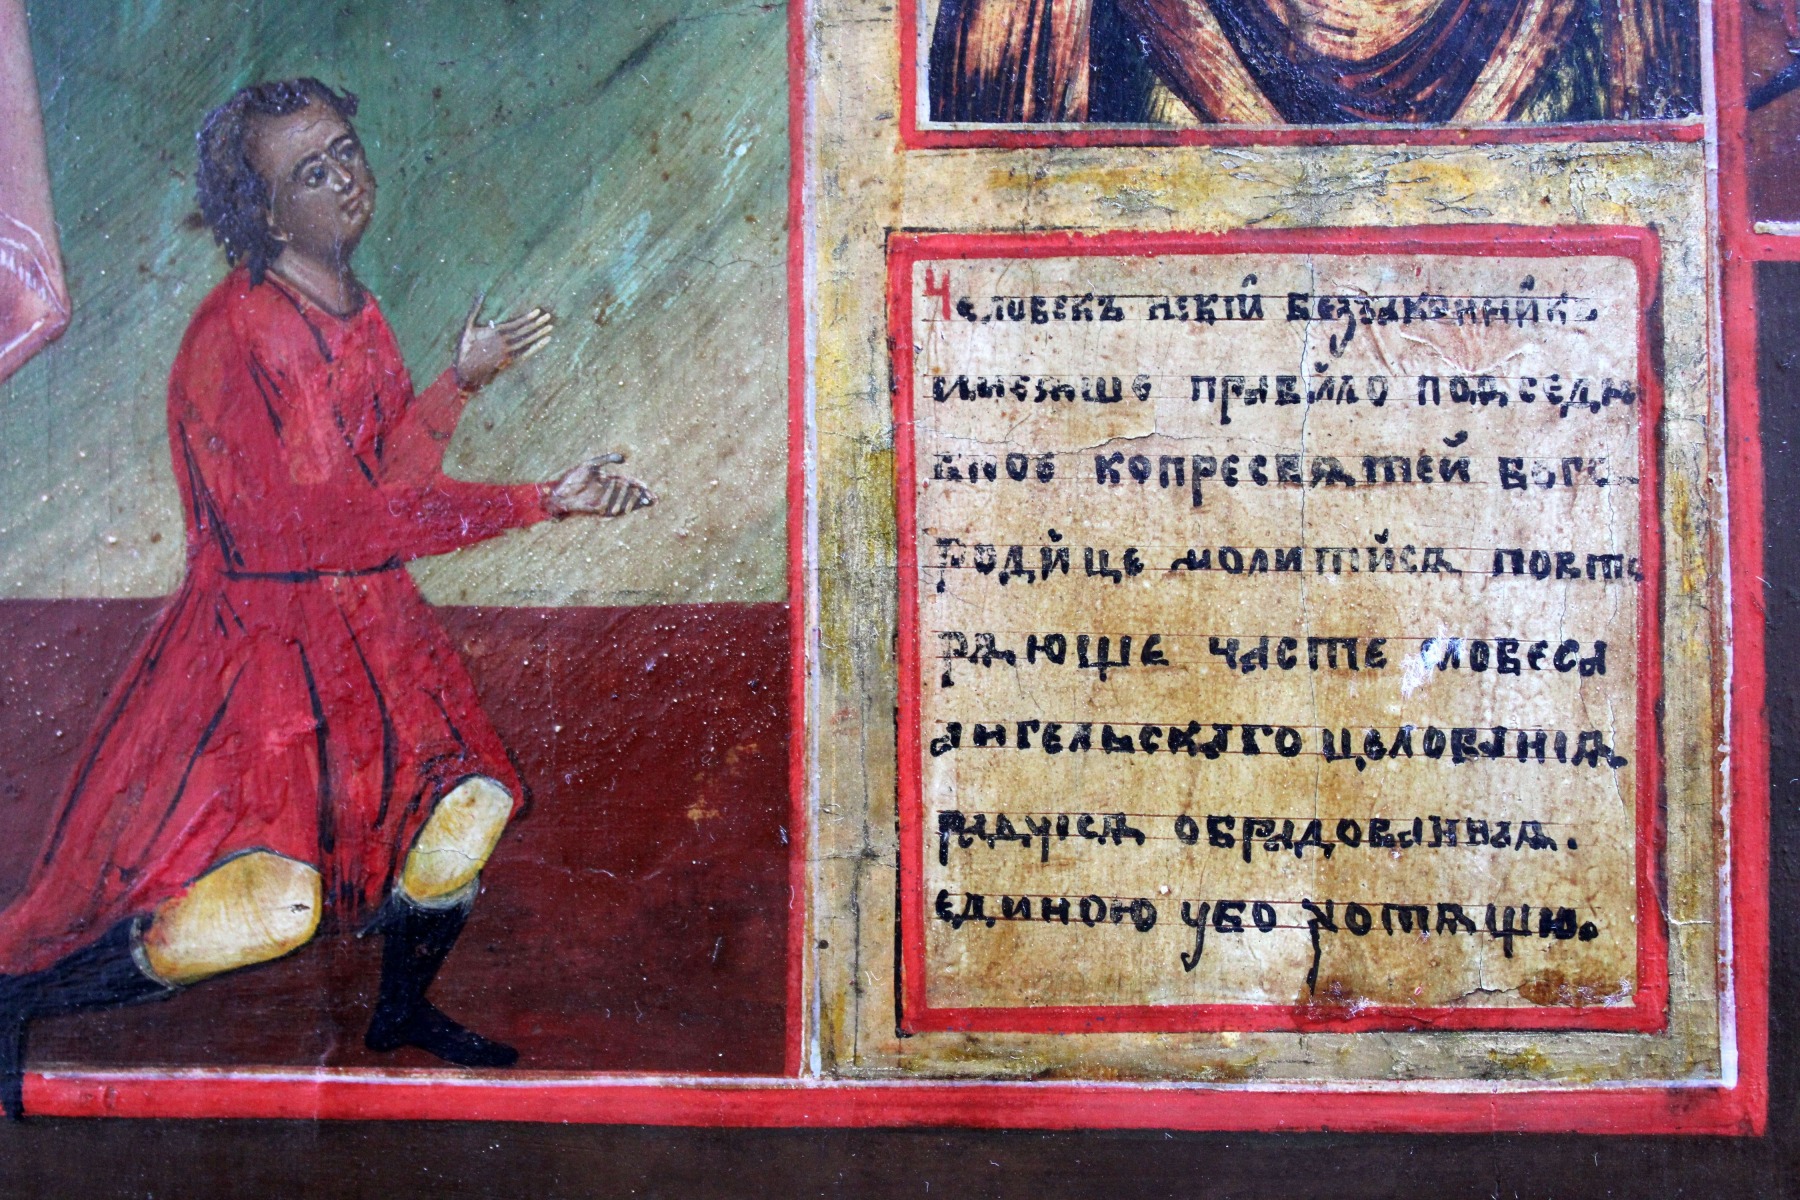 Человекъ некїй беззаконнйкъ
имеяше правйло повседн
вное копресвятей Бого
родйце молитйся повто
ряюще часте словеса
ангельскаго целованїя
радуїся обрадованная.
единою убо хотящю.